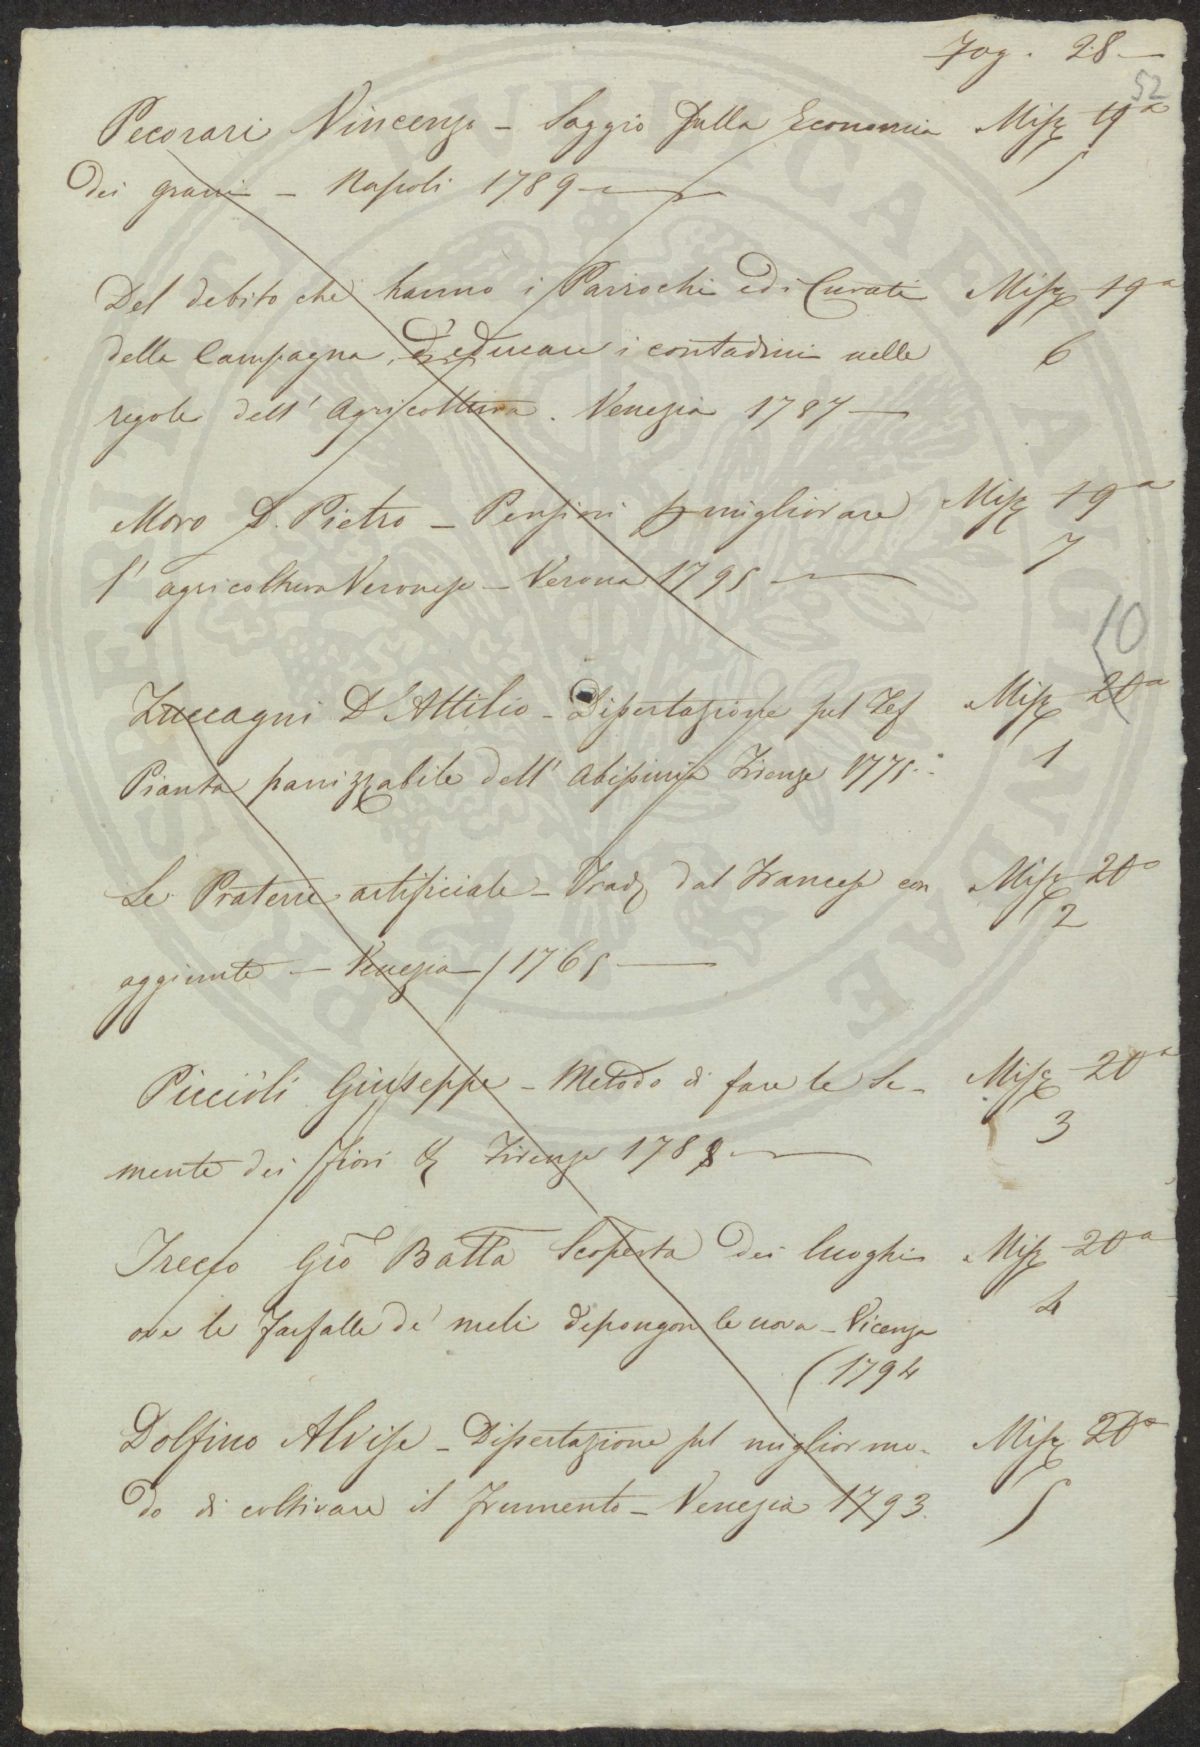 Fog. 28 —
52
Pecorari Vincenzo – Saggio sulla Economia Misz 19a
dei grani – Napoli 1789 — 5
Del debito che hanno i Parrochi ed i Curati Misz 19a
della Campagna, d'educare i contadini nelle 6
regole dell' Agricoltura. Venezia 1787 —
Moro D. Pietro – Pensieri per migliorare Misz 19a
l' agricoltura Veronese – Verona 1795 — 7
10
Zuccagni D. Attilio – Dissertazione sul Tef Misz 20a
Pianta panizzabile dell' Abissinia Firenze 1775. 1
Le Praterie artificiale – Trad dal Francese con Misz 20a
2
aggiunte — Venezia 1765 —
Piccioli Giuseppe – Metodo di fare le Se– Misz 20a
mente dei fiori & Firenze 1788 — 3
Trecco Gio Batta Scoperta dei luoghi Misz 20a
ove le Farfalle de' meli depongon le uova – Vicenza 4
(1794
Dolfino Alvise – Dissertazione sul miglior mo– Misz 20a
do di coltivare il frumento – Venezia 1793. 5